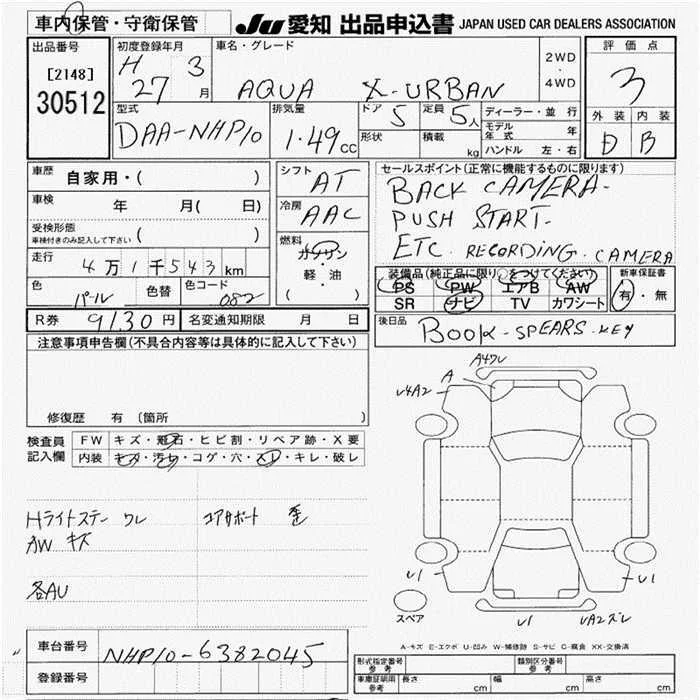 車内保管・守衛保管 JU 愛知 出品申込書 JAPAN USED CAR DEALERS ASSOCIATION
出品番号 初度登録年月 車名・グレード 2WD 評価点
[2148] H 27 3月 AQUA X-URBAN 4WD 3
30512 型式 排気量 ドア 5 定員 5人 ディーラー・並行 外装 内装
DAA-NHP10 1.49cc 形状 積載 kg モデル年式 年 D B
ハンドル 左・右
車歴 自家用・( ) シフト AT セールスポイント(正常に機能するものに限ります)
車検 年 月( 日) 冷房 AAC BACK CAMERA-
受検形態 ( ) PUSH START-
車検付きのみ記入して下さい 燃料 ガソリン ETC. RECORDING. CAMERA
走行 4万1千543km 軽・油 装備品(純正品に限り○をつけてください) 新車保証書
色 パール 色替 色コード 082 ( ) PS PW エアB AW 有・無
SR ナビ TV カワシート
R券 9130円 名変通知期限 月 日 後日品 BOOK-SPEARS-KEY
注意事項申告欄(不具合内容等は具体的に記入して下さい)
A4ワレ
A
U4A2
修復歴 有 (箇所 )
検査員 FW キズ・飛石・ヒビ割・リペア跡・X要
記入欄 内装 キズ・汚れ・コゲ・穴・スレ・キレ・破レ
Hライトステー ワレ エアサポート 歪
AW キズ
U1 U1
各AU
スペア U1 UA2ズレ
車台番号 NHP10-6382045
A-キズ E-エクボ U-凹み W-補修跡 S-サビ C-腐食 XX-交換済
登録番号 形式指定番号 参考 類別区分番号 参考
車庫証明用 参考 長さ cm 幅 cm 高さ cm